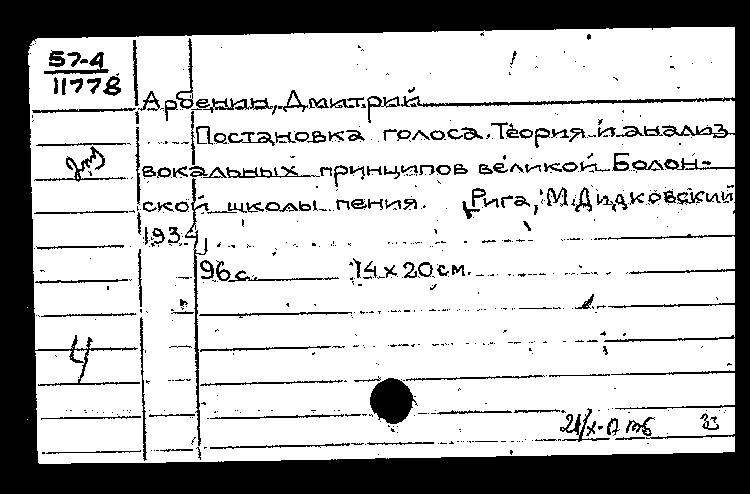 57-4
11778
Арбенин, Дмитрий
Постановка голоса. Теория и анализ
вокальных принципов великой Болон-
ской школы пения. [Рига, М. Дидковский,
1934]
96 с. 14 x 20 см.
4